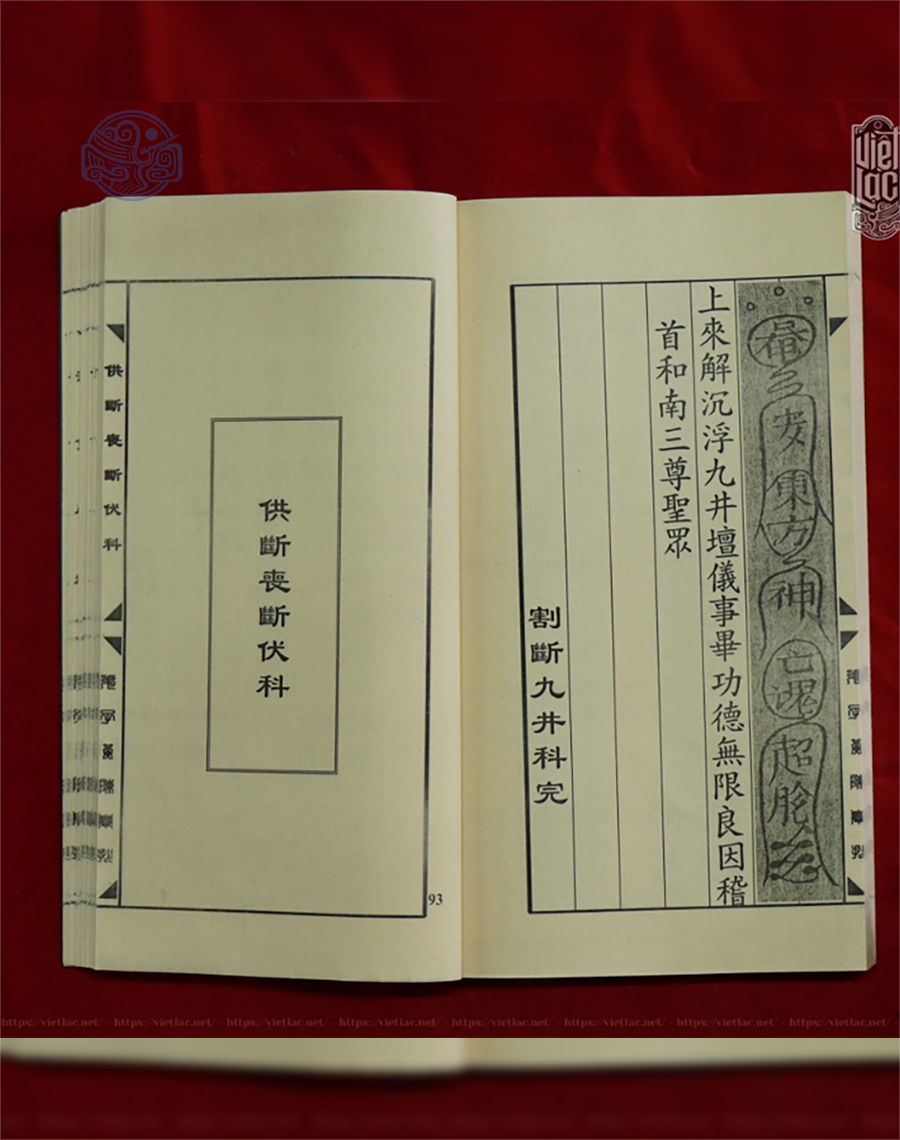 Việt
Lạc
上來解沉浮九井壇儀事畢功德無限良因稽
首和南三尊聖眾
割斷九井科完
供斷喪斷伏科
供斷喪斷伏科
93
安
東方
神
亡
超
https://vietlac.net/ - https://vietlac.net/ - https://vietlac.net/ - https://vietlac.net/ - https://vietlac.net/ - https://vietlac.net/ - https://vietlac.net/ - https://vietlac.net/